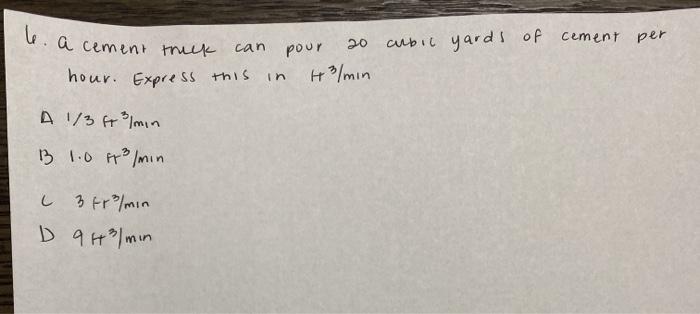 6. a cement truck can pour 20 cubic yards of cement per
hour. Express this in ft³/min
A 1/3 ft³/min
B 1.0 ft³/min
C 3 ft³/min
D 9 ft³/min